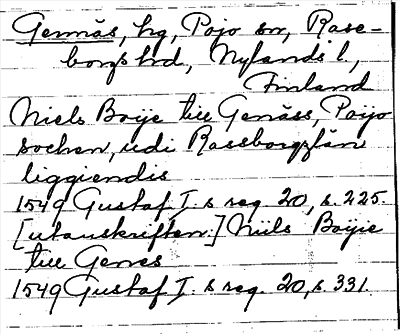 Gennäs, hg, Pojo sn, Rase-
borgs hd, Nylands l.,
Finland
Niels Boije till Genäss, Poijo
sochen, udi Rassborgzlän
liggiendis
1549 Gustaf I.s reg. 20, s. 225.
[utanskriften:] Niils Boijie
till Genes
1549 Gustaf I.s reg. 20, s. 331.